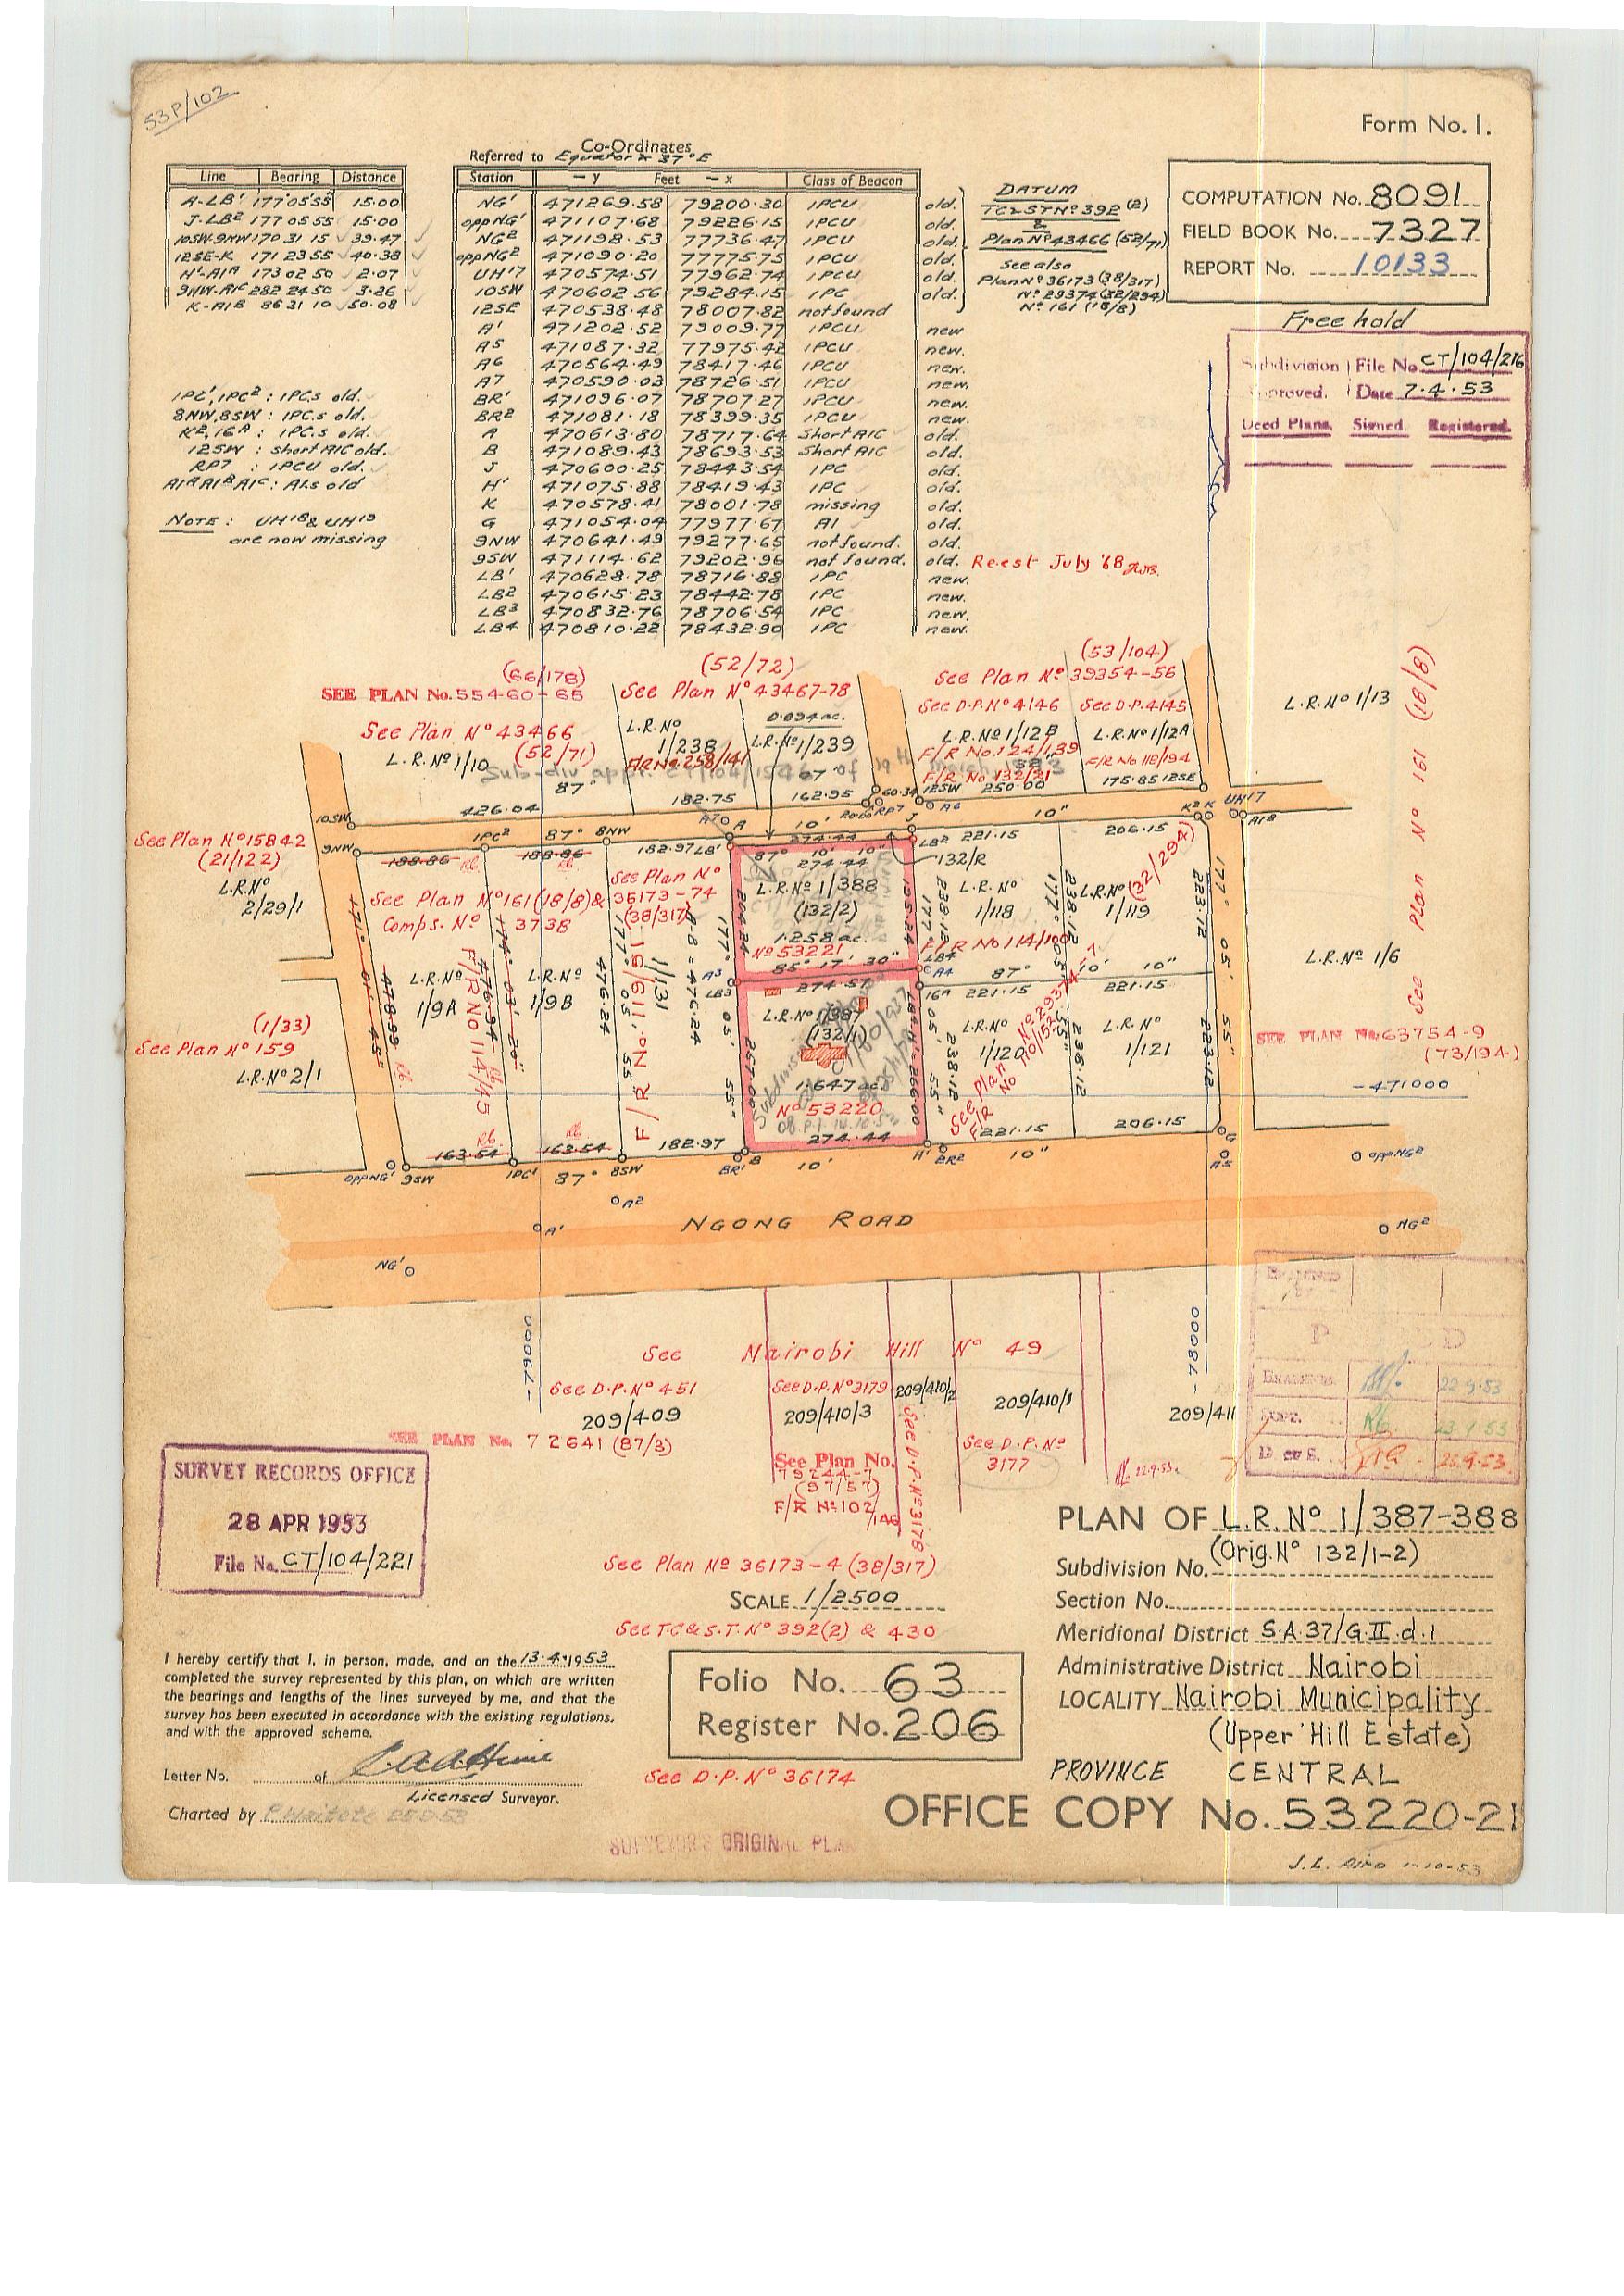 53P/102
Form No. 1.
Line Bearing Distance
A-LB¹ 177 05 55 15.00
J-LB² 177 05 55 15.00
10SW-9NW 170 31 15 39.47
12SE-K 171 23 55 40.38
H¹-A1A 173 02 50 2.07
9NW-A1C 282 24 50 3.26
K-A1B 86 31 10 50.08
1PC¹, 1PC² : IPCs old.
8NW, 8SW : IPC.s old.
K², 16A : IPC.s old.
12SW : short AIC old.
RP7 : IPCU old.
A1A A1B A1C : A1.s old
NOTE : UH18 & UH19
are now missing
Co-Ordinates
Referred to Equator & 37°E
Station — y Feet — x Class of Beacon
NG¹ 471269.58 79200.30 IPCU old.
opp NG¹ 471107.68 79226.15 IPCU old.
NG² 471198.53 77736.47 IPCU old.
opp NG² 471090.20 77775.75 IPCU old.
UH17 470574.51 77962.74 IPCU old.
10SW 470602.56 79284.15 IPC old.
12SE 470538.48 78007.82 not found
A¹ 471202.52 79009.77 IPCU new
A5 471087.32 77975.42 IPCU new.
A6 470564.49 78417.46 IPCU new.
A7 470590.03 78726.51 IPCU new.
BR¹ 471096.07 78707.27 IPCU new.
BR² 471081.18 78399.35 IPCU new.
A 470613.80 78717.64 Short AIC old.
B 471089.43 78693.53 Short AIC old.
J 470600.25 78443.54 IPC old.
H¹ 471075.88 78419.43 IPC old.
K 470578.41 78001.78 missing old.
G 471054.04 77977.67 AI old.
9NW 470641.49 79277.65 not found. old.
9SW 471114.62 79202.96 not found. old. Re.est July '68
LB¹ 470628.78 78716.88 IPC new.
LB² 470615.23 78442.78 IPC new.
LB³ 470832.76 78706.54 IPC new.
LB4 470810.22 78432.90 IPC new.
DATUM
TC&ST Nº 392 (2)
&
Plan Nº 43466 (52/71)
See also
Plan Nº 36173 (38/317)
Nº 29374 (32/294)
Nº 161 (18/8)
COMPUTATION No. 8091
FIELD BOOK No. 7327
REPORT No. 10133
Free hold
Subdivision File No CT/104/216
Approved. Date 7.4.53
Deed Plans. Signed. Registered.
(66/178)
SEE PLAN No. 55460-65
(52/72)
See Plan Nº 43467-78
(53/104)
See Plan Nº 39354-56
See D.P.Nº 4146 See D.P. 4145
See Plan Nº 43466
(52/71)
L.R. Nº 1/10
L.R.Nº
1/238
F/R No. 258/141
0.094 ac.
L.R.Nº 1/239
L.R.Nº 1/12B
F/R No. 124/139
F/R No 132/21
L.R.Nº 1/12A
F/R No 118/194
L.R.Nº 1/13
See Plan Nº 161 (18/8)
Sub-div appr. CT/104/1546 of 19th March 1953
426.04 87° 182.75 162.95 60.34 20.00 RP7 12SW 250.00 175.85 12SE
10SW A7 A 10' J A6 10" K² K UH17 A1B
9NW 188.86 1PC² 87° 188.86 8NW 182.97 LB¹ 274.44 LB² 221.15 206.15
See Plan Nº 15842
(21/122)
L.R.Nº
2/29/1
See Plan Nº 161 (18/8) &
Comps. Nº 3738
See Plan Nº
36173-74
(38/317)
87° 10' 10"
274.44
L.R.Nº 1/388
(132/2)
1.258 ac.
Nº 53221
132/R
L.R. Nº
1/118
L.R.Nº
1/119
(32/294)
F/R No 114/100
204.24 195.24
85° 17' 30"
274.57
A3 LB3 LB4 A4 16A
87° 10' 10"
221.15 221.15
L.R.Nº
1/9A
L.R.Nº
1/9B
1/131
171° 01' 45"
478.99
174° 03' 20"
476.94
F/R No 114/45
177° 05' 55"
476.24
8-B = 476.24
238.12 238.12 223.12
177° 05' 55"
L.R.Nº 1/387
(132/1)
1.647 ac.
Nº 53220
267.00 266.00
274.44
L.R.Nº
1/120
L.R. Nº
1/121
See Plan Nº 29374-7
F/R No. 110/153
L.R.Nº 1/6
SEE PLAN No. 63754-9
(73/194)
— 471000
(1/33)
See Plan Nº 159
L.R.Nº 2/1
163.54 163.54 182.97 221.15 206.15
opp NG¹ 9SW 1PC¹ 87° 8SW BR¹ B 10' H¹ BR² 10" G A5 opp NG²
A2
A¹
NGONG ROAD
NG¹ NG²
— 79000 — 78000
See Nairobi Hill Nº 49
See D.P.Nº 451
209/409
SEE PLAN No. 72641 (87/3)
See D.P.Nº 3179
209/410/3
209/410/2
See D.P.Nº 3178
209/410/1
See D.P.Nº
3177
209/411
See Plan No.
79244-7
(97/57)
F/R Nº 102
/146
EXAMINED 22.9.53
SUPT. 23.9.53
D. of S. 25.9.53.
22.9.53.
SURVEY RECORDS OFFICE
28 APR 1953
File No. CT/104/221
See Plan Nº 36173-4 (38/317)
SCALE 1/2500
See T.C & S.T. Nº 392(2) & 430
PLAN OF L.R. Nº 1/387-388
(Orig. Nº 132/1-2)
Subdivision No.
Section No.
Meridional District S.A.37/G.II.d.1
Administrative District Nairobi
LOCALITY Nairobi Municipality
(Upper Hill Estate)
PROVINCE CENTRAL
OFFICE COPY No. 53220-21
I hereby certify that I, in person, made, and on the 13.4.1953
completed the survey represented by this plan, on which are written
the bearings and lengths of the lines surveyed by me, and that the
survey has been executed in accordance with the existing regulations.
and with the approved scheme.
Letter No. of
Licensed Surveyor.
Charted by
Folio No. 63
Register No. 206
See D.P. Nº 36174
SURVEYOR'S ORIGINAL PLAN